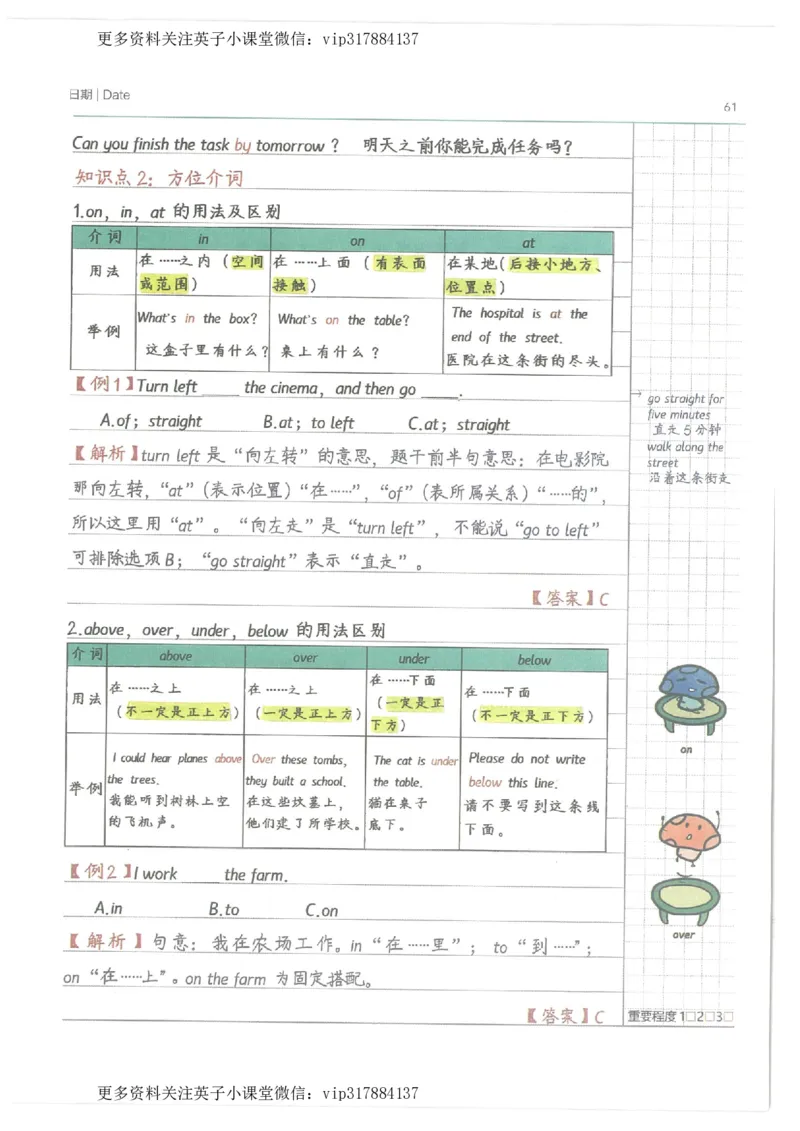 更多资料关注英子小课堂微信：vip317884137
日期 | Date
61
Can you finish the task by tomorrow ? 明天之前你能完成任务吗？
知识点 2：方位介词
1.on，in，at 的用法及区别
介词 in on at
用法 在……之内（空间或范围） 在……上面（有表面接触） 在某地（后接小地方、位置点）
举例 What's in the box? 这盒子里有什么？ What's on the table? 桌上有什么？ The hospital is at the end of the street. 医院在这条街的尽头。
【例1】Turn left ____ the cinema，and then go ____.
A.of；straight B.at；to left C.at；straight
【解析】turn left 是“向左转”的意思，题干前半句意思：在电影院
那向左转，“at”（表示位置）“在……”，“of”（表所属关系）“……的”，
所以这里用“at”。“向左走”是“turn left”，不能说“go to left”
可排除选项B；“go straight”表示“直走”。
【答案】C
→ go straight for
five minutes
直走5分钟
walk along the
street
沿着这条街走
2.above，over，under，below 的用法区别
介词 above over under below
用法 在……之上（不一定是正上方） 在……之上（一定是正上方） 在……下面（一定是正下方） 在……下面（不一定是正下方）
举例 I could hear planes above the trees. 我能听到树林上空的飞机声。 Over these tombs, they built a school. 在这些坟墓上，他们建了所学校。 The cat is under the table. 猫在桌子底下。 Please do not write below this line. 请不要写到这条线下面。
on
over
【例2】I work ____ the farm.
A.in B.to C.on
【解析】句意：我在农场工作。in“在……里”；to“到……”；
on“在……上”。on the farm 为固定搭配。
【答案】C
重要程度 1□2□3□
更多资料关注英子小课堂微信：vip317884137